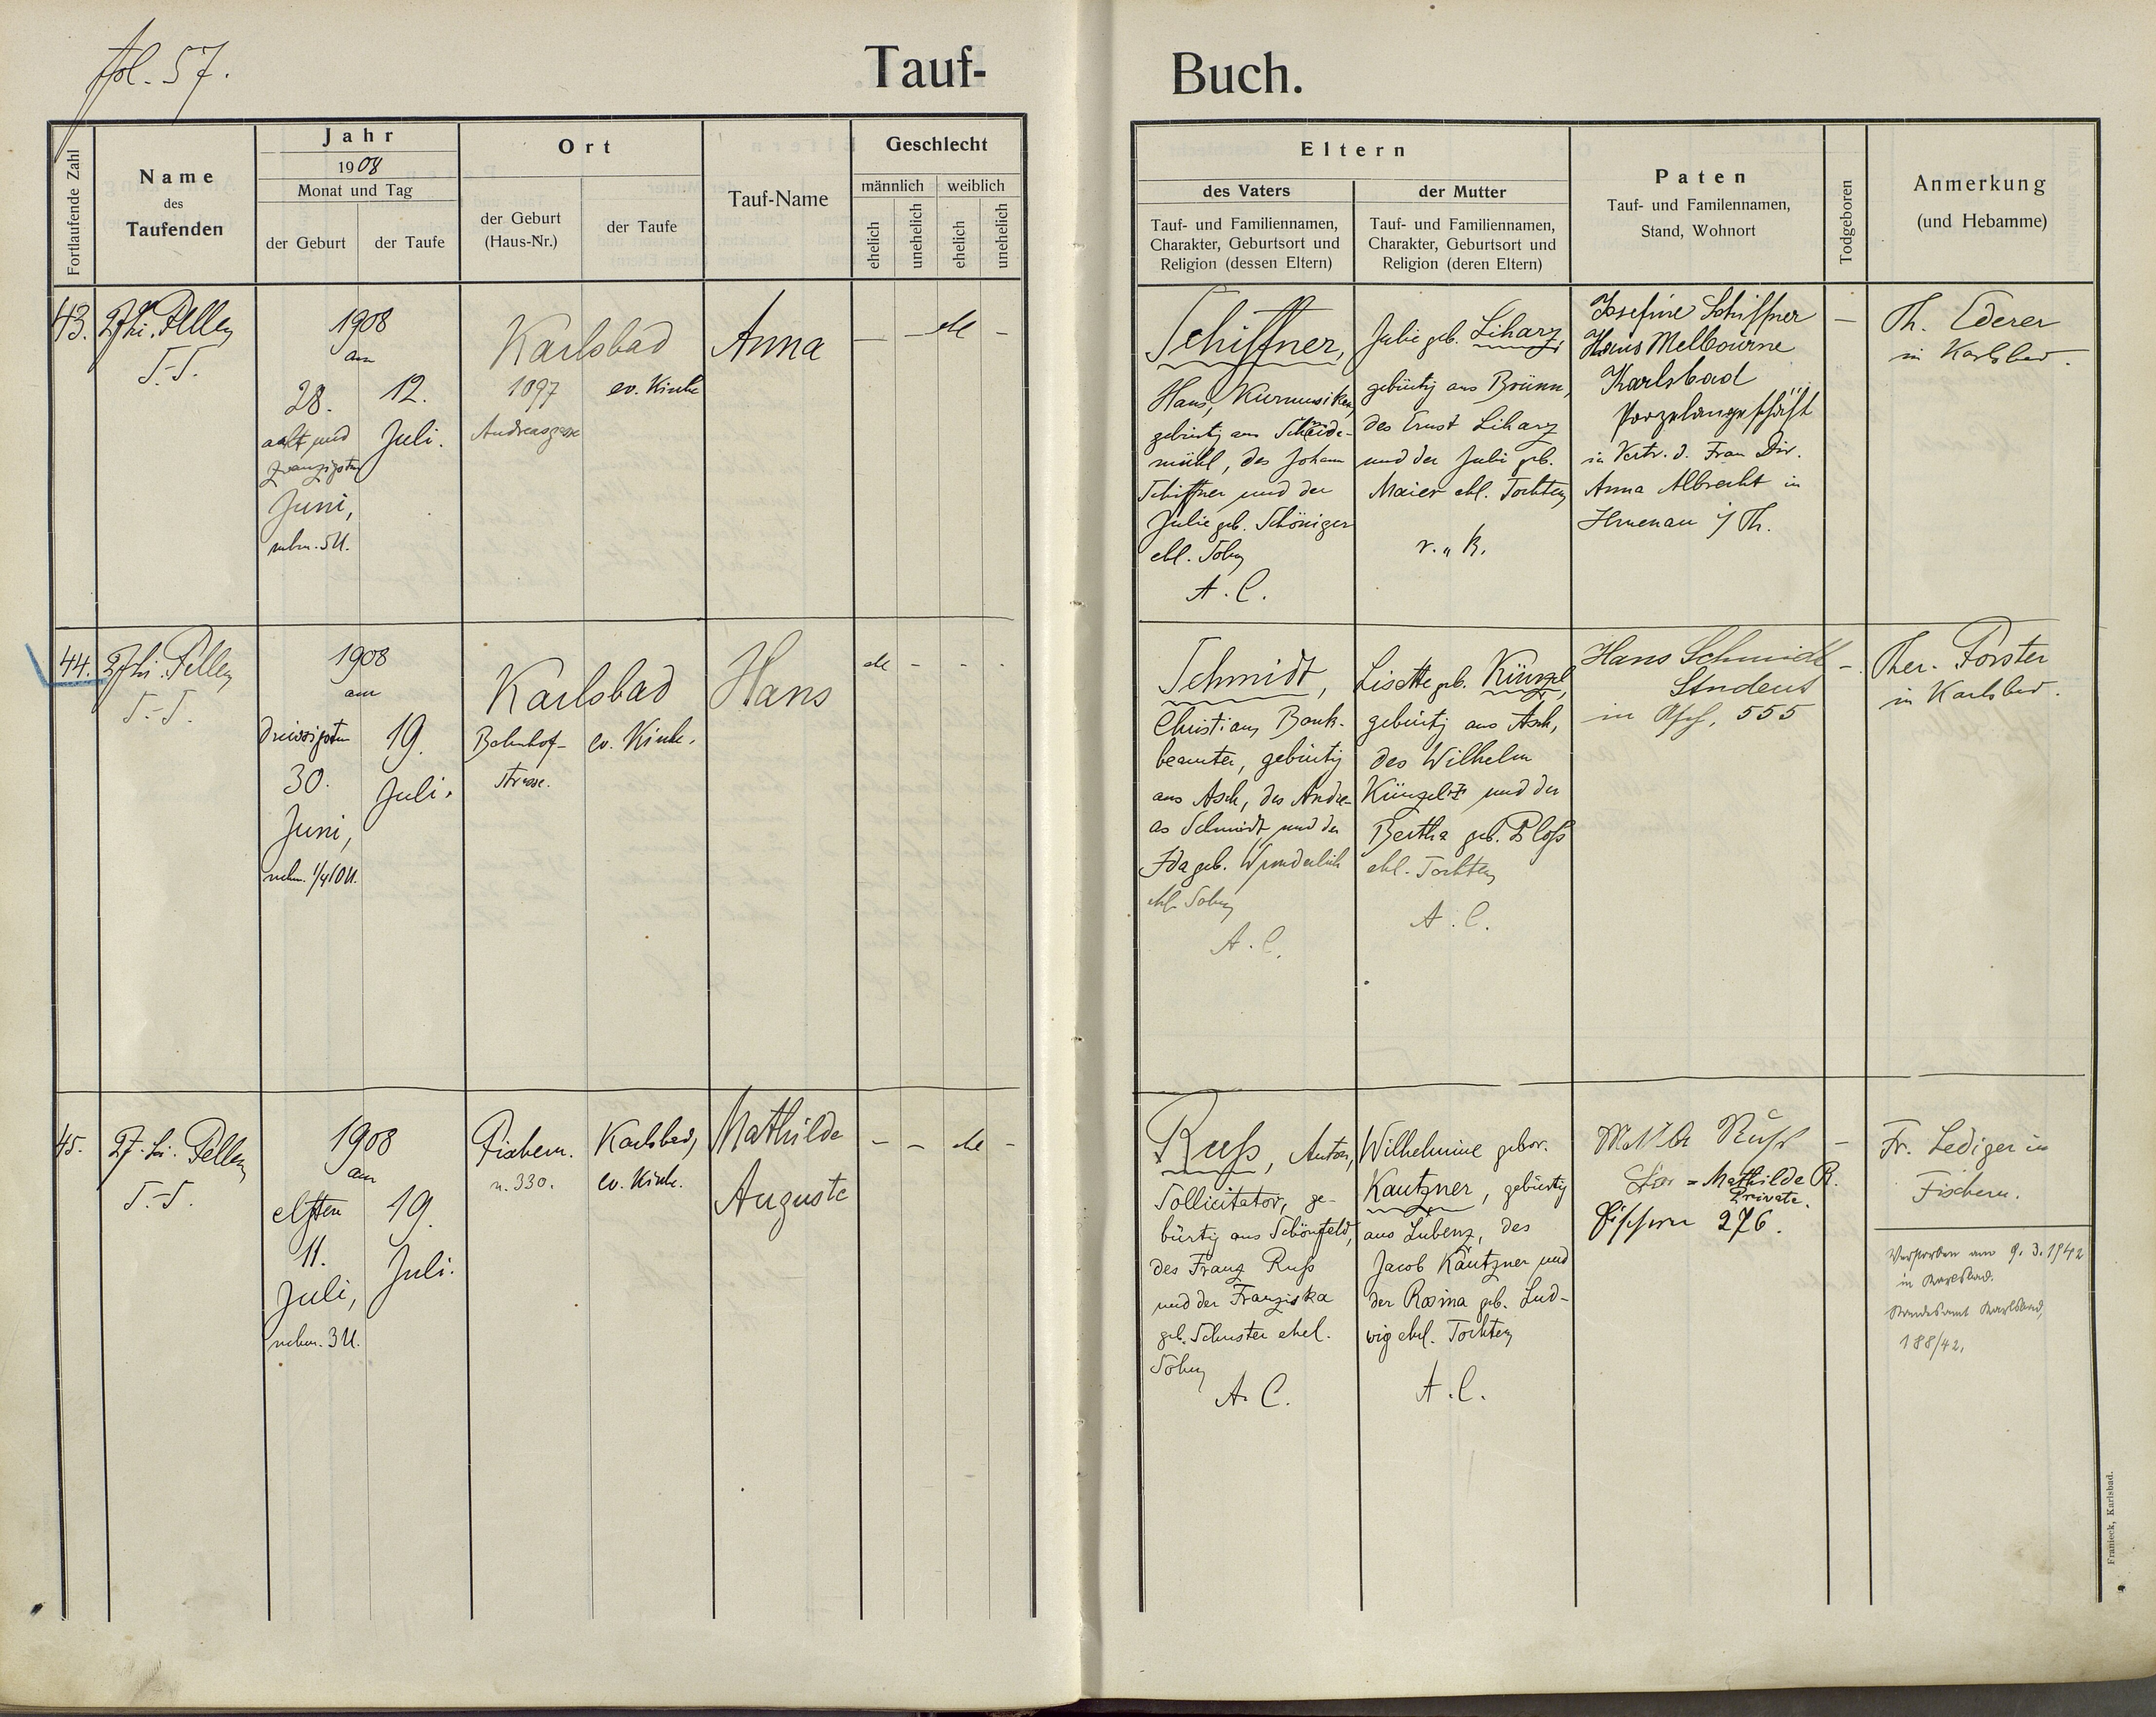 fol. 57.
Tauf-
Buch.
Fortlaufende Zahl
Name
des
Taufenden
Jahr
1908
Monat und Tag
der Geburt
der Taufe
Ort
der Geburt
(Haus-Nr.)
der Taufe
Tauf-Name
Geschlecht
männlich
weiblich
ehelich
unehelich
ehelich
unehelich
Eltern
des Vaters
Tauf- und Familiennamen,
Charakter, Geburtsort und
Religion (dessen Eltern)
der Mutter
Tauf- und Familiennamen,
Charakter, Geburtsort und
Religion (deren Eltern)
Paten
Tauf- und Familennamen,
Stand, Wohnort
Todgeboren
Anmerkung
(und Hebamme)
43.
1908
am
28.
acht und
zwanzigsten
Juni,
nchm. 5 U.
12.
Juli.
Karlsbad
1097
Andreasgasse
ev. Kirche
Anna
— — ehl —
Schiffner,
Hans, Kurmusiker,
gebürtig aus Scheide-
mühl, des Johann
Schiffner und der
Julie geb. Schöniger
ehl. Sohn
A. C.
Julie geb. Liharz,
gebürtig aus Brünn,
des Ernst Liharz
und der Julie geb.
Maier ehl. Tochter
r. k.
Josefine Schiffner
Haus Melbourne
Karlsbad
Porzelangeschäft
in Vertr. d. Frau Dir.
Anna Albrecht in
Ilmenau i/Th.
—
Th. Ederer
in Karlsbad.
44.
1908
am
dreissigsten
30.
Juni,
nchm. 1/4 10 U.
19.
Juli.
Karlsbad
Bahnhof-
strasse.
ev. Kirche.
Hans
ehl - - -
Schmidt,
Christian, Bank-
beamter, gebürtig
aus Asch, des Andre-
as Schmidt und der
Ida geb. Wunderlich
ehl. Sohn
A. C.
Lisette geb. Künzel,
gebürtig aus Asch,
des Wilhelm
Künzel und der
Bertha geb. Ploß
ehl. Tochter
A. C.
Hans Schmidt
Student
in Asch, 555
-
Ther. Forster
in Karlsbad.
45.
1908
am
elften
11.
Juli,
nchm. 3 U.
19.
Juli.
Fischern.
n. 330.
Karlsbad,
ev. Kirche.
Mathilde
Auguste
- - ehl -
Ruß, Anton,
Sollicitator, ge-
bürtig aus Schönfeld,
des Franz Ruß
und der Franziska
geb. Schuster ehel.
Sohn
A. C.
Wilhelmine gebor.
Kautzner, gebürtig
aus Lubenz, des
Jacob Kautzner und
der Rosina geb. Lud-
wig ehl. Tochter
A. C.
Ruß
= Mathilde R.
Private.
Fischern 276.
-
Fr. Lediger in
Fischern.
Verstorben am 9. 3. 1942
in Karlsbad.
Standesamt Karlsbad,
188/42.
Franieck, Karlsbad.